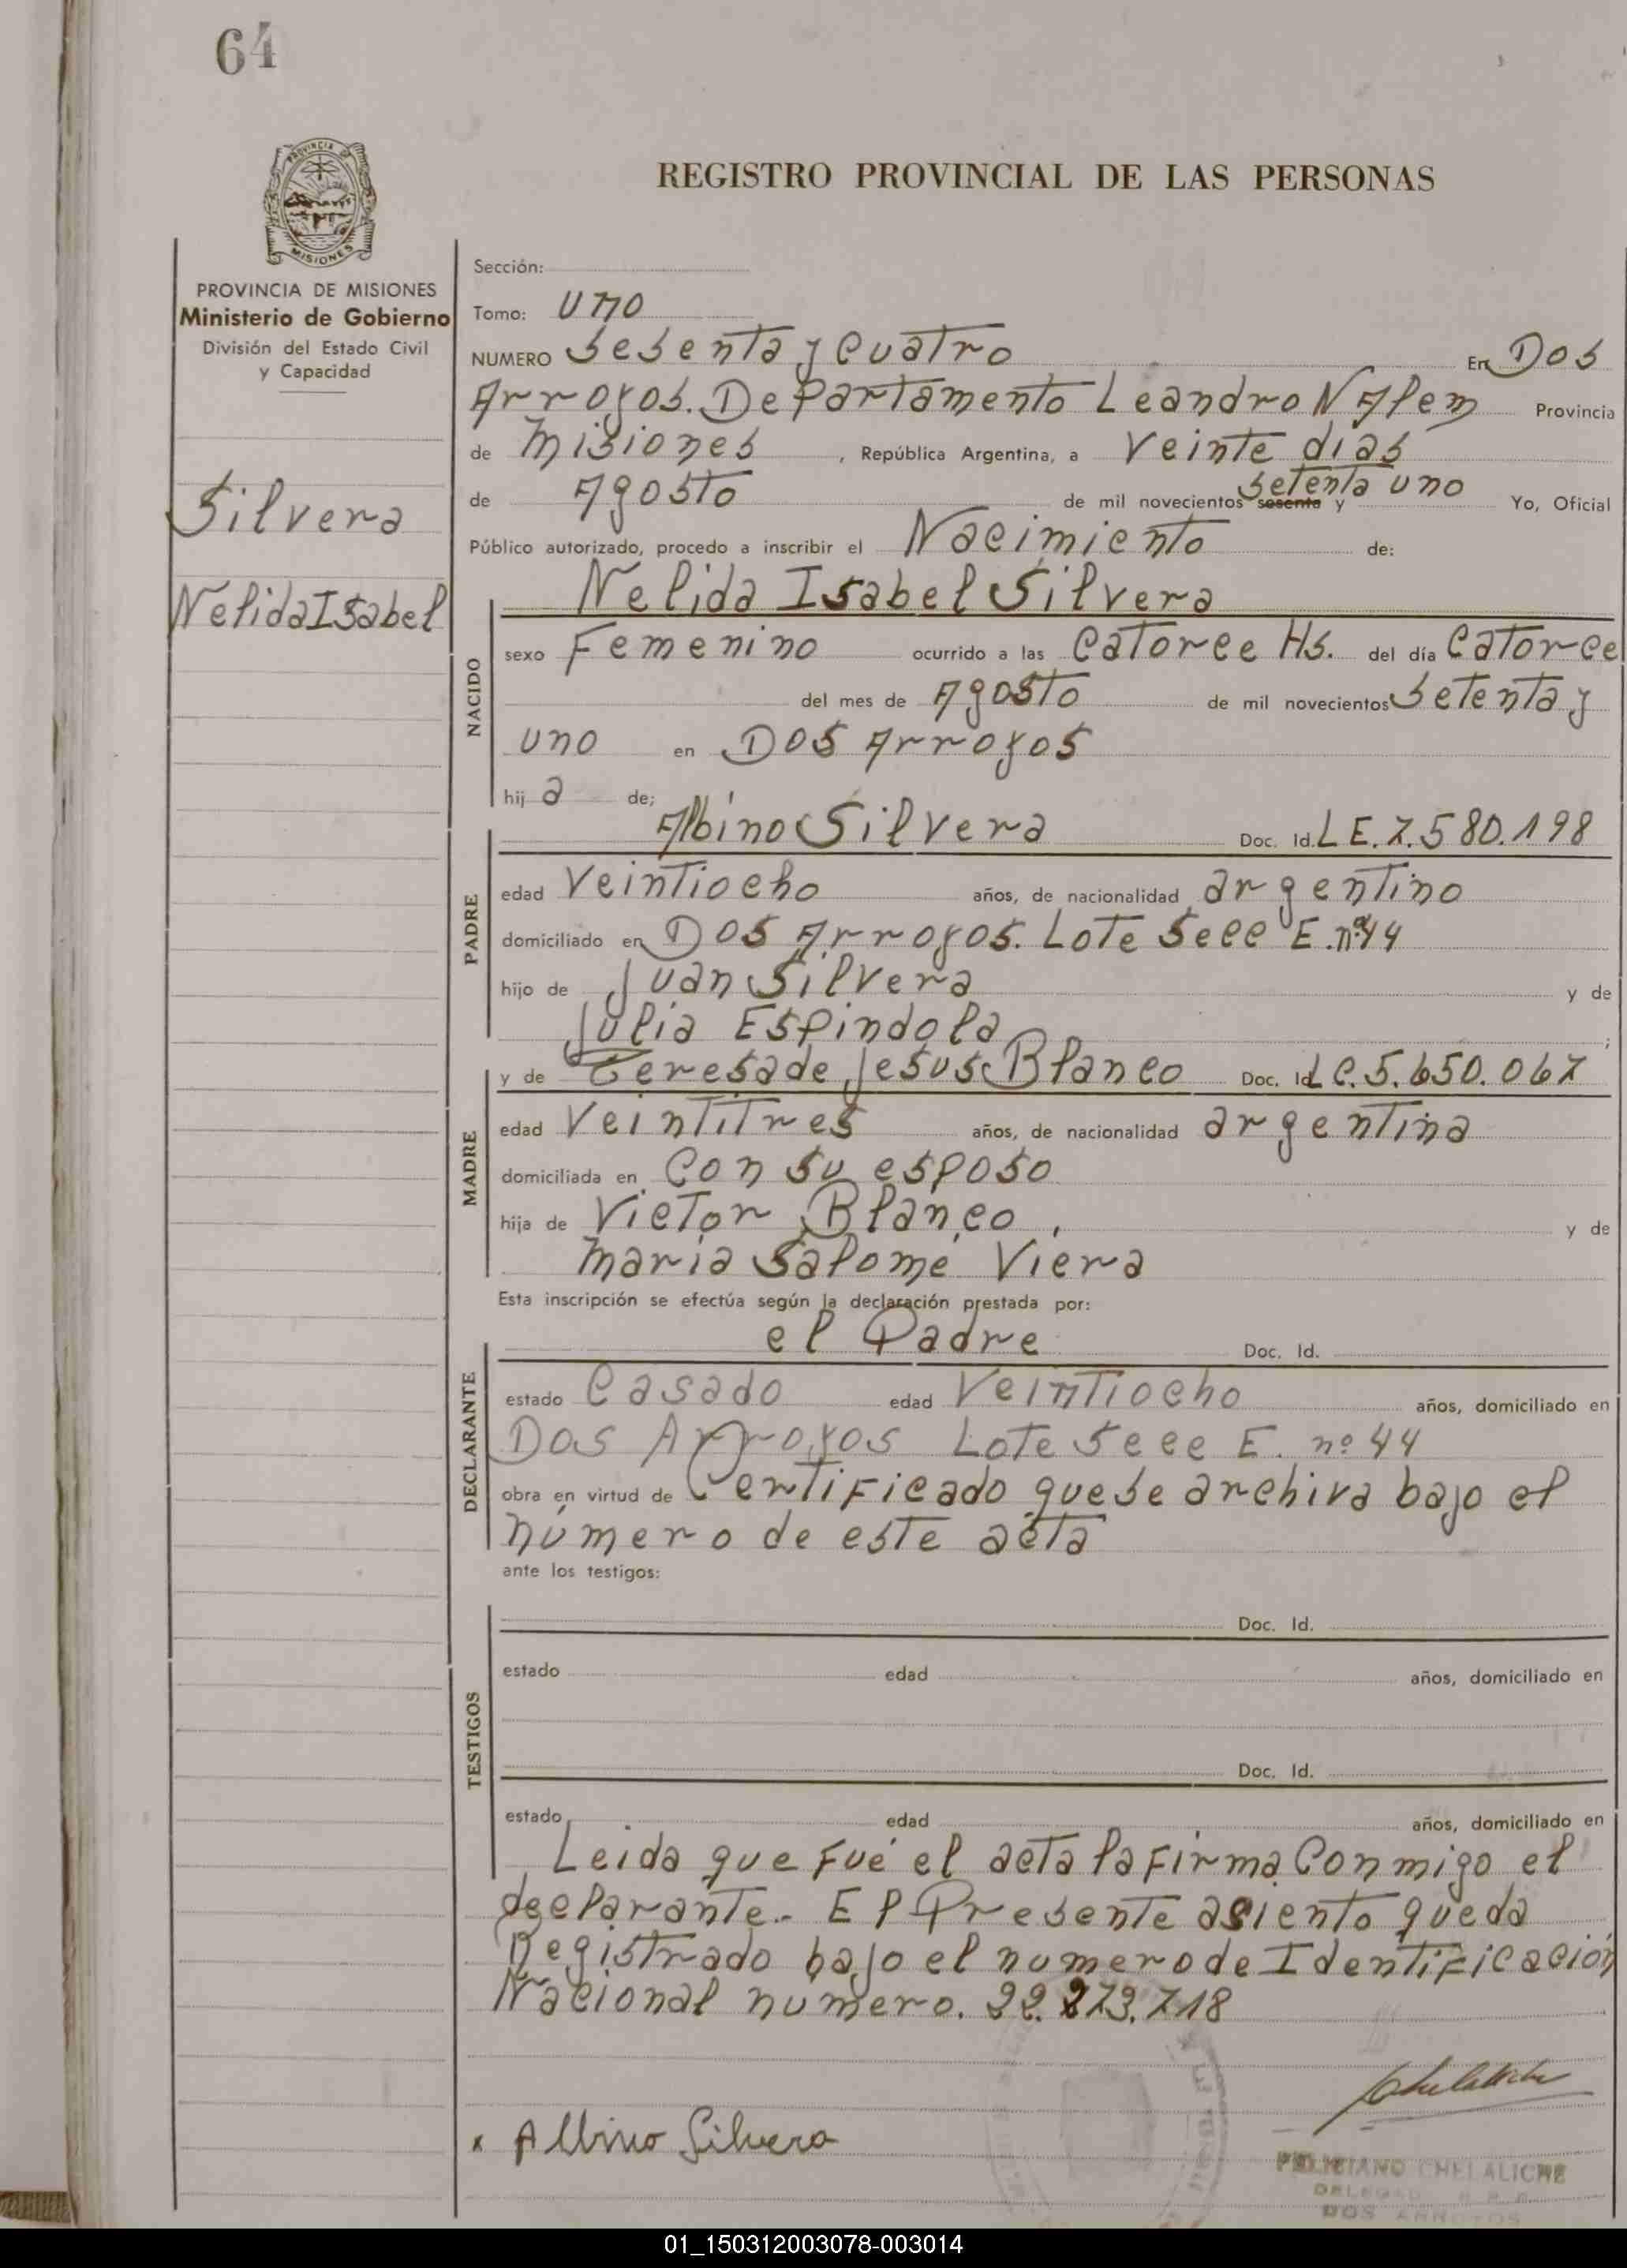 64
PROVINCIA
MISIONES
REGISTRO PROVINCIAL DE LAS PERSONAS
PROVINCIA DE MISIONES
Ministerio de Gobierno
División del Estado Civil
y Capacidad
Silvera
Nelida Isabel
Sección:
Tomo: uno
NUMERO Sesenta y cuatro En Dos
Arroyos. Departamento Leandro N Alem Provincia
de Misiones, República Argentina, a Veinte dias
de Agosto de mil novecientos sesenta y setenta uno Yo, Oficial
Público autorizado, procedo a inscribir el Nacimiento de:
NACIDO
Nelida Isabel Silvera
sexo Femenino ocurrido a las Catorce Hs. del día Catorce
del mes de Agosto de mil novecientos Setenta y
uno en Dos Arroyos
hija de;
PADRE
Albino Silvera Doc. Id. L E. 7.580.198
edad Veintiocho años, de nacionalidad argentino
domiciliado en Dos Arroyos. Lote Secc E. nº 44
hijo de Juan Silvera y de
Julia Espindola ;
MADRE
y de Teresa de Jesus Blanco Doc. Id L C. 5.650.067
edad Veintitres años, de nacionalidad argentina
domiciliada en Con su esposo
hija de Victor Blanco, y de
Maria Salomé Viera
Esta inscripción se efectúa según la declaración prestada por:
DECLARANTE
el Padre Doc. Id.
estado Casado edad Veintiocho años, domiciliado en
Dos Arroyos Lote Secc E. nº 44
obra en virtud de Certificado que se archiva bajo el
número de este acta
ante los testigos:
TESTIGOS
Doc. Id.
estado edad años, domiciliado en
Doc. Id.
estado edad años, domiciliado en
Leida que fué el acta la firma Conmigo el
declarante.- El Presente asiento queda
Registrado bajo el numero de Identificación
Nacional numero. 22.273.718
x Albino Silvera
FELICIANO CHELALICHE
DELEGADO R. P. P.
DOS ARROYOS
01_150312003078-003014